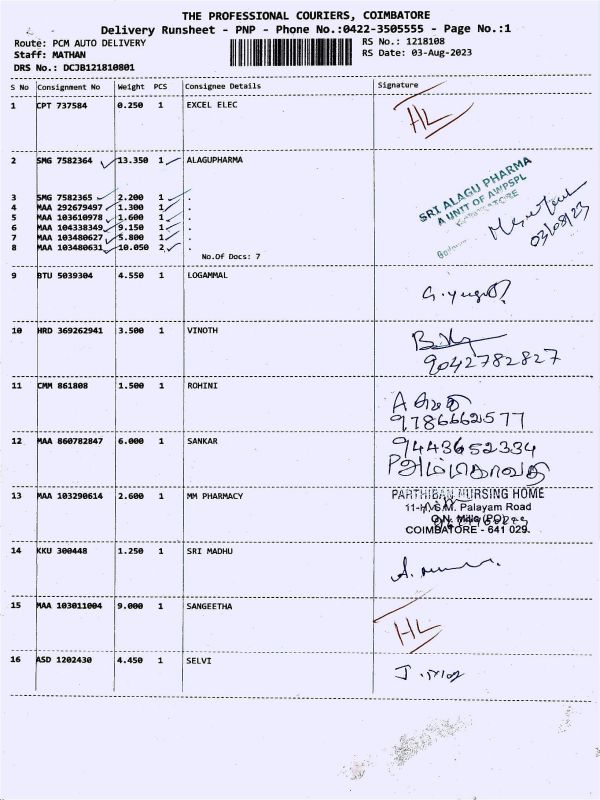 THE PROFESSIONAL COURIERS, COIMBATORE
Delivery Runsheet - PNP - Phone No.:0422-3505555 - Page No.:1
Route: PCM AUTO DELIVERY
RS No.: 1218108
Staff: MATHAN
RS Date: 03-Aug-2023
DRS No.: DCJB121810801
S No Consignment No Weight PCS Consignee Details Signature
1 CPT 737584 0.250 1 EXCEL ELEC
HL
2 SMG 7582364 13.350 1 ALAGUPHARMA
SRI ALAGU PHARMA
A UNIT OF AWPSPL
3 SMG 7582365 2.200 1 .
4 MAA 292679497 1.300 1 .
5 MAA 103610978 1.600 1 .
6 MAA 104338349 9.150 1 .
7 MAA 103480627 5.800 1 .
8 MAA 103480631 10.050 2 .
03/08/23
No.Of Docs: 7
9 BTU 5039304 4.550 1 LOGAMMAL
10 HRD 369262941 3.500 1 VINOTH
9042782827
11 CMM 861808 1.500 1 ROHINI
9786662577
12 MAA 860782847 6.000 1 SANKAR
9443652334
13 MAA 103290614 2.600 1 MM PHARMACY
PARTHIBAN NURSING HOME
Palayam Road
COIMBATORE - 641 029.
14 KKU 300448 1.250 1 SRI MADHU
15 MAA 103011004 9.000 1 SANGEETHA
HL
16 ASD 1202430 4.450 1 SELVI